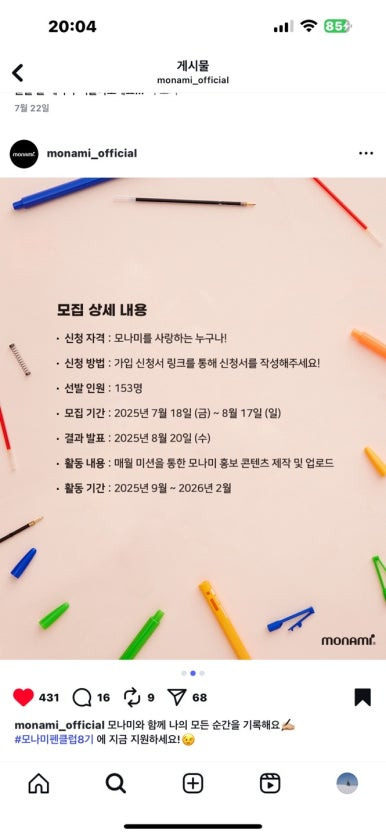 20:04
85
게시물
monami_official
7월 22일
monami
monami_official
모집 상세 내용
• 신청 자격 : 모나미를 사랑하는 누구나!
• 신청 방법 : 가입 신청서 링크를 통해 신청서를 작성해주세요!
• 선발 인원 : 153명
• 모집 기간 : 2025년 7월 18일 (금) ~ 8월 17일 (일)
• 결과 발표 : 2025년 8월 20일 (수)
• 활동 내용 : 매월 미션을 통한 모나미 홍보 콘텐츠 제작 및 업로드
• 활동 기간 : 2025년 9월 ~ 2026년 2월
monami
431 16 9 68
monami_official 모나미와 함께 나의 모든 순간을 기록해요✍🏼
#모나미펜클럽8기 에 지금 지원하세요!😉